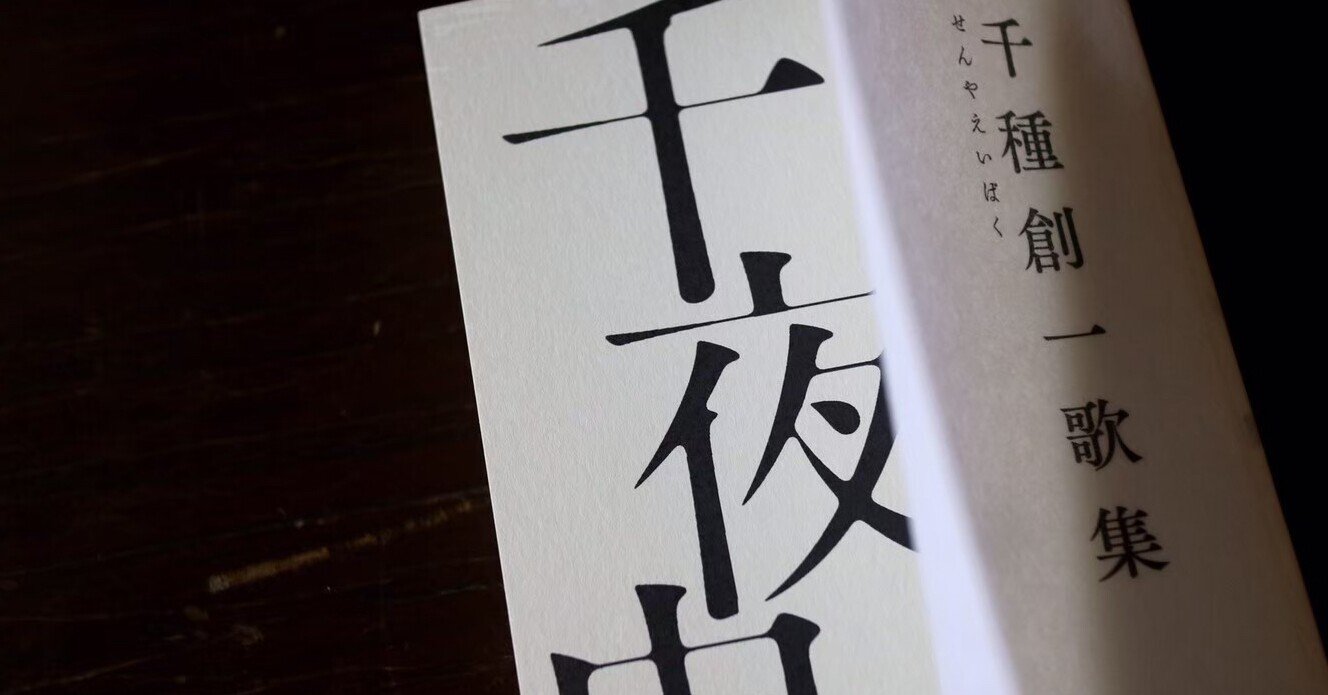 千種創一歌集
せんやえいばく
千夜